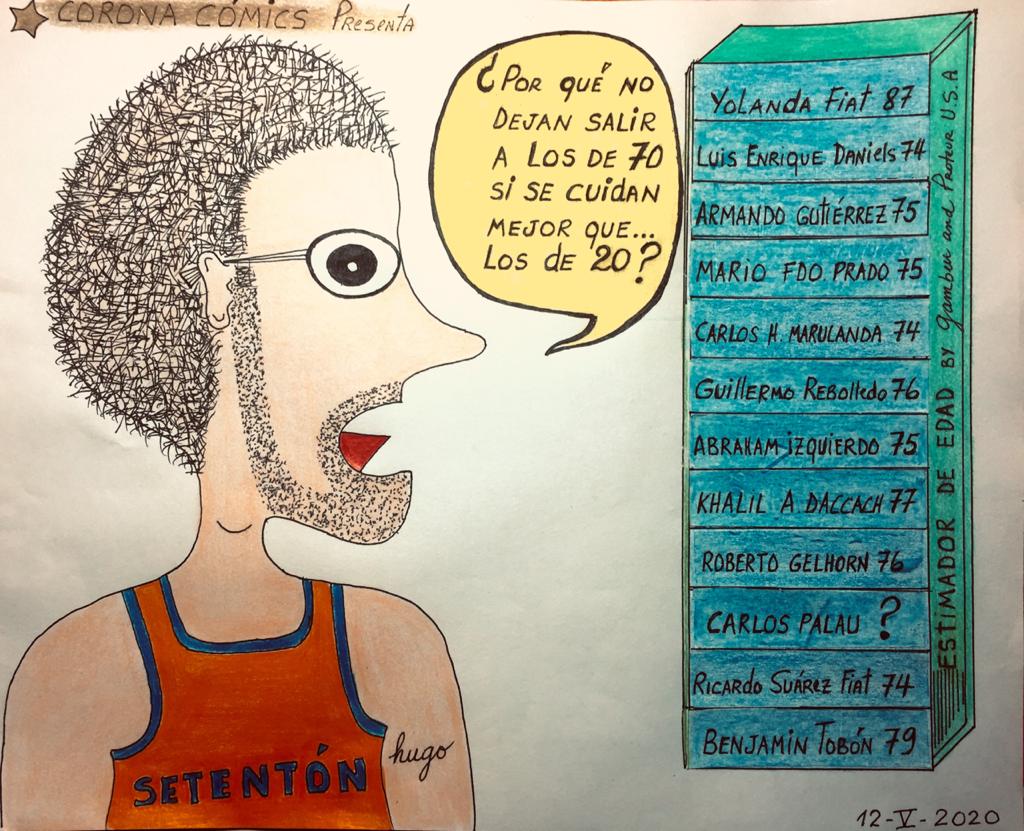 CORONA CÓMICS Presenta
¿Por qué no
dejan salir
a los de 70
si se cuidan
mejor que...
los de 20?
Yolanda Fiat 87
Luis Enrique Daniels 74
Armando Gutiérrez 75
Mario Fdo Prado 75
Carlos H. Marulanda 74
Guillermo Rebolledo 76
Abraham Izquierdo 75
Khalil A Daccach 77
Roberto Gelhorn 76
Carlos Palau ?
Ricardo Suárez Fiat 74
Benjamin Tobón 79
ESTIMADOR DE EDAD BY and U.S.A
SETENTÓN
hugo
12-V-2020